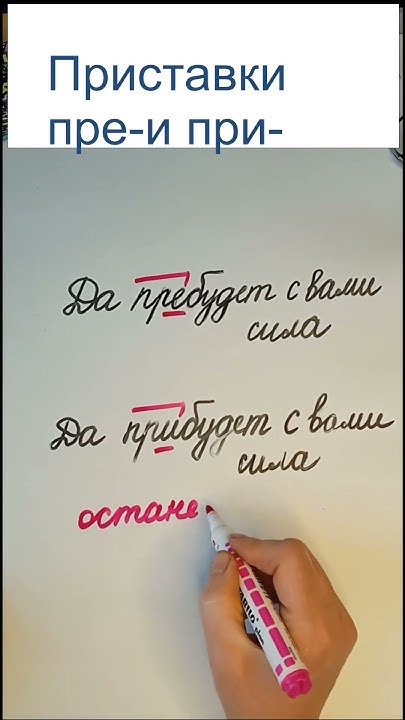 Приставки
пре-и при-
Да пребудет с вами
сила
Да прибудет с вами
сила
остане